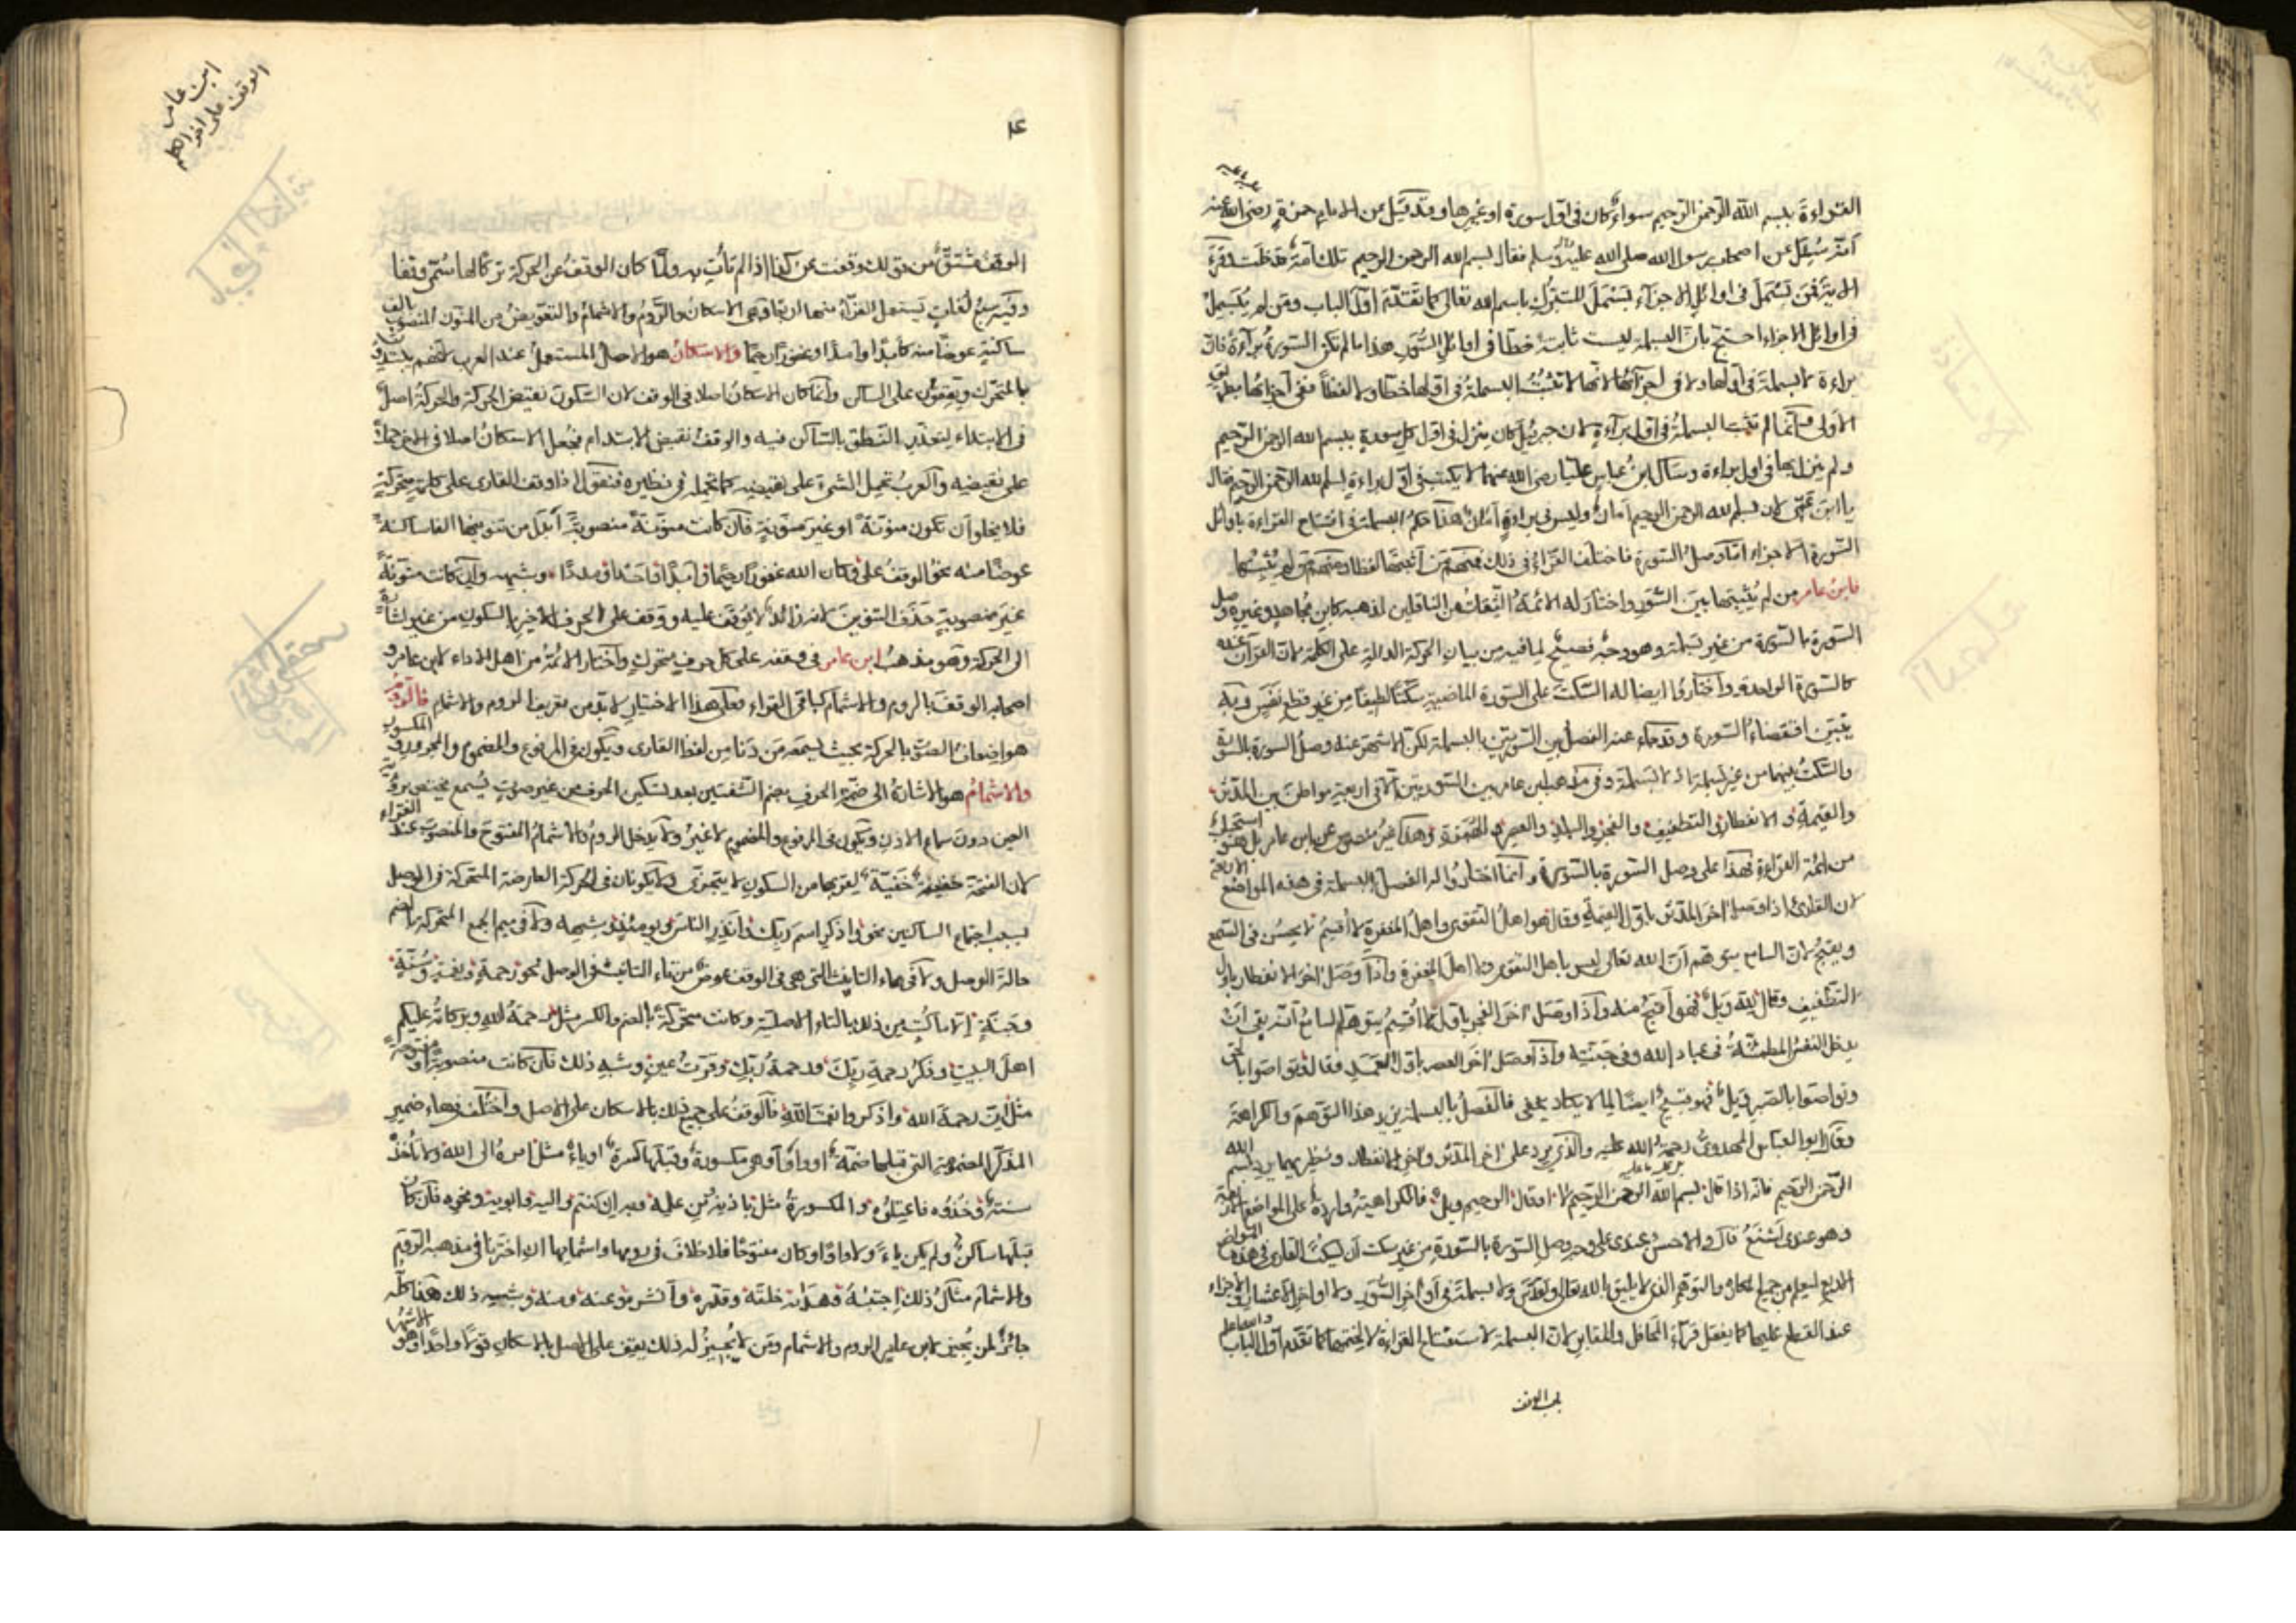 القراءة ببسم الله الرحمن الرحيم سواء كان في اول سورة او غيرها وقد قيل عن الامام حمزة رضي الله عنه
انه سئل عن اصحاب رسول الله صلى الله عليه وسلم فقال بسم الله الرحمن الرحيم تلك امة قد خلت
في اوائل الاجزاء تستعمل للتبرك باسم الله تعالى كما تقدم اول الباب ومن لم يبسمل
في اوائل الاجزاء احتج بان البسملة ليست ثابتة خطا في اوائل هذا ما لم تكن السورة براءة فان
براءة لا بسملة في اولها ولا في اجزائها لانها لا تثبت البسملة في اولها خطا ولا لفظا ففي اجزائها بطريق
الاولى وانما لم تثبت البسملة في اول براءة لان جبرئيل كان ينزل في اول كل سورة ببسم الله الرحمن الرحيم
ولم ينزل بها في اول براءة وسأل ابن عباس عليا رضي الله عنهما لم لا يكتب في اول براءة بسم الله الرحمن الرحيم فقال
يا ابن عمي لان بسم الله الرحمن الرحيم امان وليس في براءة امان هذا حكم البسملة في افتتاح القراءة باوائل
السورة الاجزاء اما وصل السورة فاختلف القراء في ذلك فمنهم من اثبتها لفظا ومنهم من لم يثبتها
فابن عامر ممن لم يثبتها بين السور واختار له الائمة الثقات من الناقلين لمذهبه كابن مجاهد وغيره وصل
السورة بالسورة من غير بسملة وهو وجه فصيح لما فيه من بيان الحركة الدالة على الكلمة لان القرآن عنده
كالسورة الواحدة واختاروا ايضا له السكت على السورة الماضية سكتا لطيفا من غير قطع نفس وبه
يتبين انقضاء السورة وقد جاء عنه الفصل بين السورتين بالبسملة لكن الاشهر عنه وصل السورة بالسورة
والسكت بينهما من غير بسملة في مذهب ابن عامر بين السورتين الا في اربعة مواطن بين المدثر
والقيمة والانفطار والتطفيف والفجر والبلد والعصر والهمزة وهذا غير منصوص عن ابن عامر بل هو استحباب
من ائمة القراءة لهذا على وصل السورة بالسورة وانما اختاروا له الفصل بالبسملة في هذه المواضع الاربعة
لان القارئ اذا وصل آخر المدثر باول القيمة وقال هو اهل التقوى واهل المغفرة لا اقسم لا يحسن في السمع
ويقبح لان السامع يتوهم ان الله تعالى ليس باهل التقوى ولا اهل المغفرة واذا وصل آخر الانفطار باول
التطفيف وقال لله ويل فهو اقبح منه واذا وصل آخر الفجر باول لا اقسم يتوهم السامع انه نفى ان
يدخل النفس المطمئنة في عباد الله وفي جنته واذا وصل آخر العصر باول الهمزة فقال وتواصوا بالحق
وتواصوا بالصبر ويل فهو قبيح ايضا لما لا يكاد يخفى فالفصل بالبسملة يزيل هذا التوهم والكراهة
وقال ابو العباس المهدوي رحمة الله عليه والذي يرد على آخر المدثر وآخر الانفطار ونظيريهما يرد بسم الله
الرحمن الرحيم فانه اذا قال بسم الله الرحمن الرحيم لا او قال الرحيم ويل فالكراهية واردة على المواضع
وهو عندي اشنع قال والاحسن عندي على وجه وصل السورة بالسورة من غير سكت ان يسكت القارئ في هذه المواضع
الاربع ليسلم من جميع المكاره والتوهم الذي لا يليق بالله تعالى وتقدس ولا بسملة في اواخر السور ولا اواخر الاعشار والاجزاء
عند القطع عليها كما يفعل قراء المحافل والمقابر لان البسملة لاستفتاح القراءة لا لختمها كما تقدم اول الباب
باب الوقف
١٤
ابن عامر
الوقف على اخر الكلم
الوقف مشتق من قولك وقفت عن كذا اذا لم تأت به ولما كان الوقف عن الحركة تركا لها سمي وقفا
وفيه سبع لغات يستعمل القراء منها اربعا وهي الاسكان والروم والاشمام والتعويض من التنوين المنصوب الف
ساكنة عوضا منه كابدا واسدا وغفورا رحيما والاسكان هو الاصل المستعمل عند العرب لانهم يبتدؤن
بالمتحرك ويقفون على الساكن وانما كان الاسكان اصلا في الوقف لان السكون نقيض الحركة والحركة اصل
في الابتداء لتعذر النطق بالساكن فيه والوقف نقيض الابتداء فجعل الاسكان اصلا في الاخر حملا
على نقيضه والعرب تحمل الشيء على نقيضه كما تحمله في نظيره فنقول اذا وقف القارئ على كلمة متحركة
فلا يخلو ان تكون منونة او غير منونة فان كانت منونة منصوبة ابدل من تنوينها الفا ساكنة
عوضا منه نحو الوقف على وكان الله غفورا رحيما وابدا واحدا وملدا وشبهه وان كانت منونة
غير منصوبة حذف التنوين لانه زائد لا يوقف عليه ووقف على الحرف الاخير بالسكون من غير اشارة
الى الحركة وهو مذهب ابن عامر في وقفه على كل حرف متحرك واختار الائمة من اهل الاداء لابن عامر و
اصحابه الوقف بالروم والاشمام كباقي القراء وعلى هذا الاختيار لا بد من تعريف الروم والاشمام فالروم
هو اضعاف الصوت بالحركة بحيث يسمعه من دنا من لفظ القارئ ويكون في المرفوع والمضموم والمجرور والمكسور
والاشمام هو الاشارة الى ضمة الحرف بضم الشفتين بعد تسكين الحرف من غير صوت يسمع فيختص برؤية
العين دون سماع الاذن ويكون في المرفوع والمضموم لا غير ولا يدخل الروم والاشمام المفتوح والمنصوب عند القراء
لان الفتحة خفيفة خفية لقربها من السكون لا يتجزى ولا يكونان في الحركة العارضة المتحركة في الوصل
بسبب اجتماع الساكنين نحو واذكر اسم ربك وانذر الناس ويومئذ وشبهه ولا في ميم الجمع المتحركة بالضم
حالة الوصل ولا في هاء التانيث التي هي في الوقف عوض من تاء التانيث في الوصل نحو رحمة ونعمة وسنة
وجنة الا ما كتب من ذلك بالتاء الاصلية وكانت متحركة بالضم والكسر مثل رحمة الله وبركاته عليكم
اهل البيت وذكر رحمة ربك ورحمة ربك وقرت عين وشبه ذلك فان كانت منصوبة او مفتوحة
مثل ان رحمة الله واذكروا نعمت الله فالوقف على جميع ذلك بالاسكان على الاصل واختلف في هاء ضمير
المذكر المضمومة التي قبلها ضمة او واو او هي مكسورة وقبلها كسرة او ياء مثل امره الى الله ولا تأخذه
سنة وخذوه فاعتلوه والمكسورة مثل باذنه من علمه وبه ان كنتم واليه ولابويه ونحوه فان كان
قبلها ساكن ولم يكن ياء ولا واوا او كان مفتوحا فلا خلاف في رومها واشمامها ان اخترنا في مذهبه الروم
والاشمام مثال ذلك اجتباه وهداه خلقه وقدره وانشره وعنه ومنه وشبه ذلك هذا كله
جائز لمن يجيز لابن عامر الروم والاشمام ومن لا يجيز له ذلك يقف على الاصل بالاسكان قولا واحدا وهو الاشهر